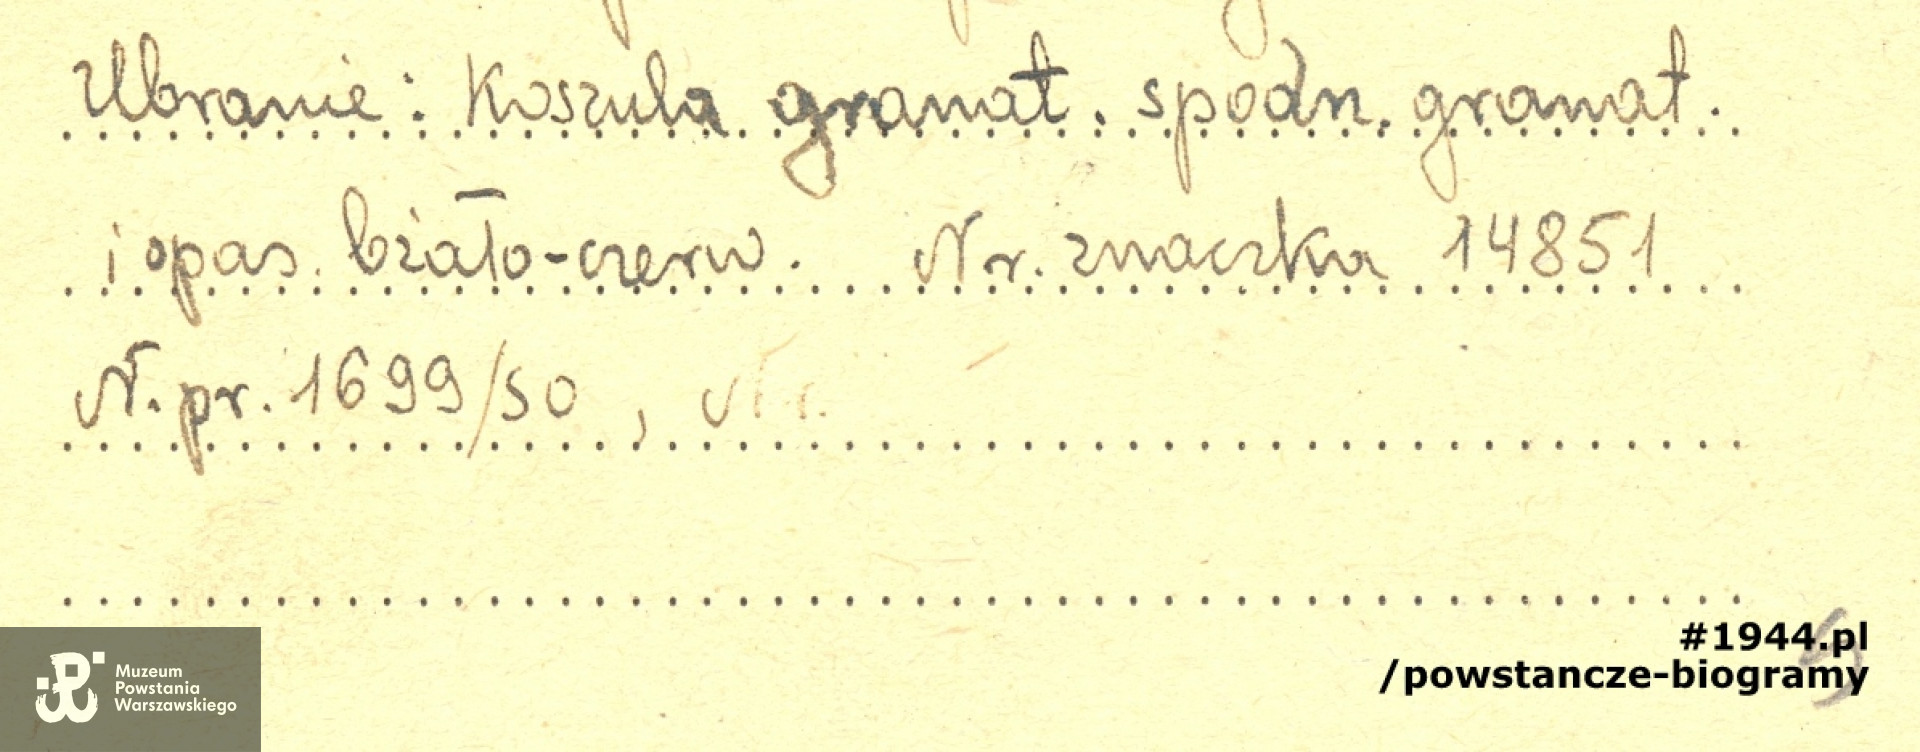 Ubranie: Koszula granat. spodn. granat.
i opas. biało-czerw. Nr. znaczka 14851
N. pr. 1699/50, Nr.
#1944.pl
/powstancze-biogramy
Muzeum
Powstania
Warszawskiego